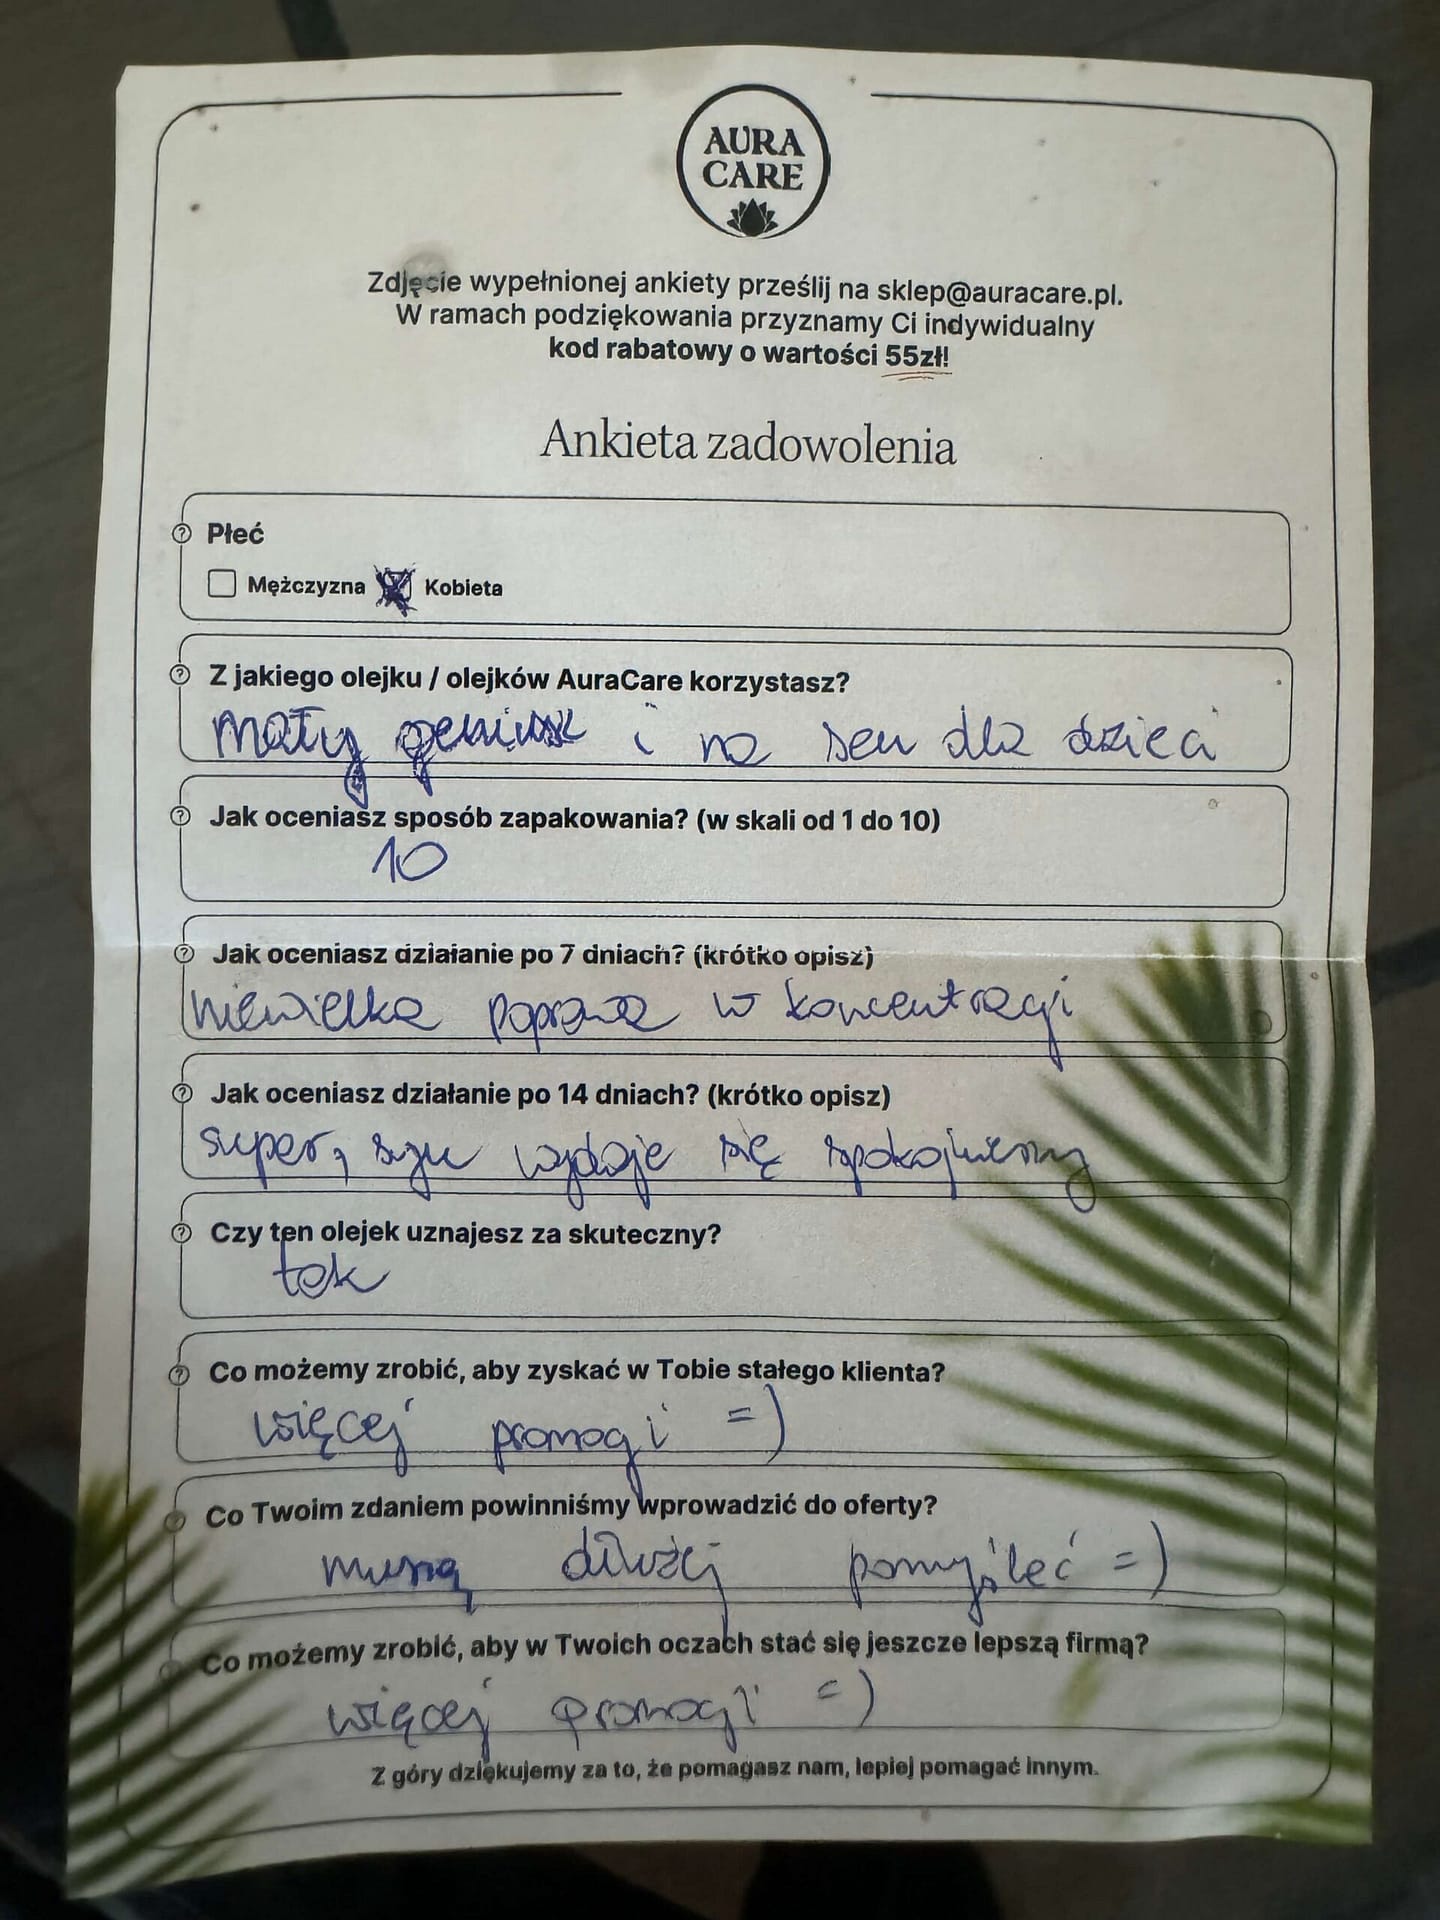 AURA
CARE
Zdjęcie wypełnionej ankiety prześlij na sklep@auracare.pl.
W ramach podziękowania przyznamy Ci indywidualny
kod rabatowy o wartości 55zł!
Ankieta zadowolenia
Płeć
Mężczyzna Kobieta
Z jakiego olejku / olejków AuraCare korzystasz?
mały geniusz i na sen dla dzieci
Jak oceniasz sposób zapakowania? (w skali od 1 do 10)
10
Jak oceniasz działanie po 7 dniach? (krótko opisz)
niewielka poprawa w koncentracji
Jak oceniasz działanie po 14 dniach? (krótko opisz)
super, syn wydaje się spokojniejszy
Czy ten olejek uznajesz za skuteczny?
tak
Co możemy zrobić, aby zyskać w Tobie stałego klienta?
więcej promocji =)
Co Twoim zdaniem powinniśmy wprowadzić do oferty?
muszą dłużej pomyśleć =)
Co możemy zrobić, aby w Twoich oczach stać się jeszcze lepszą firmą?
więcej promocji =)
Z góry dziękujemy za to, że pomagasz nam, lepiej pomagać innym.